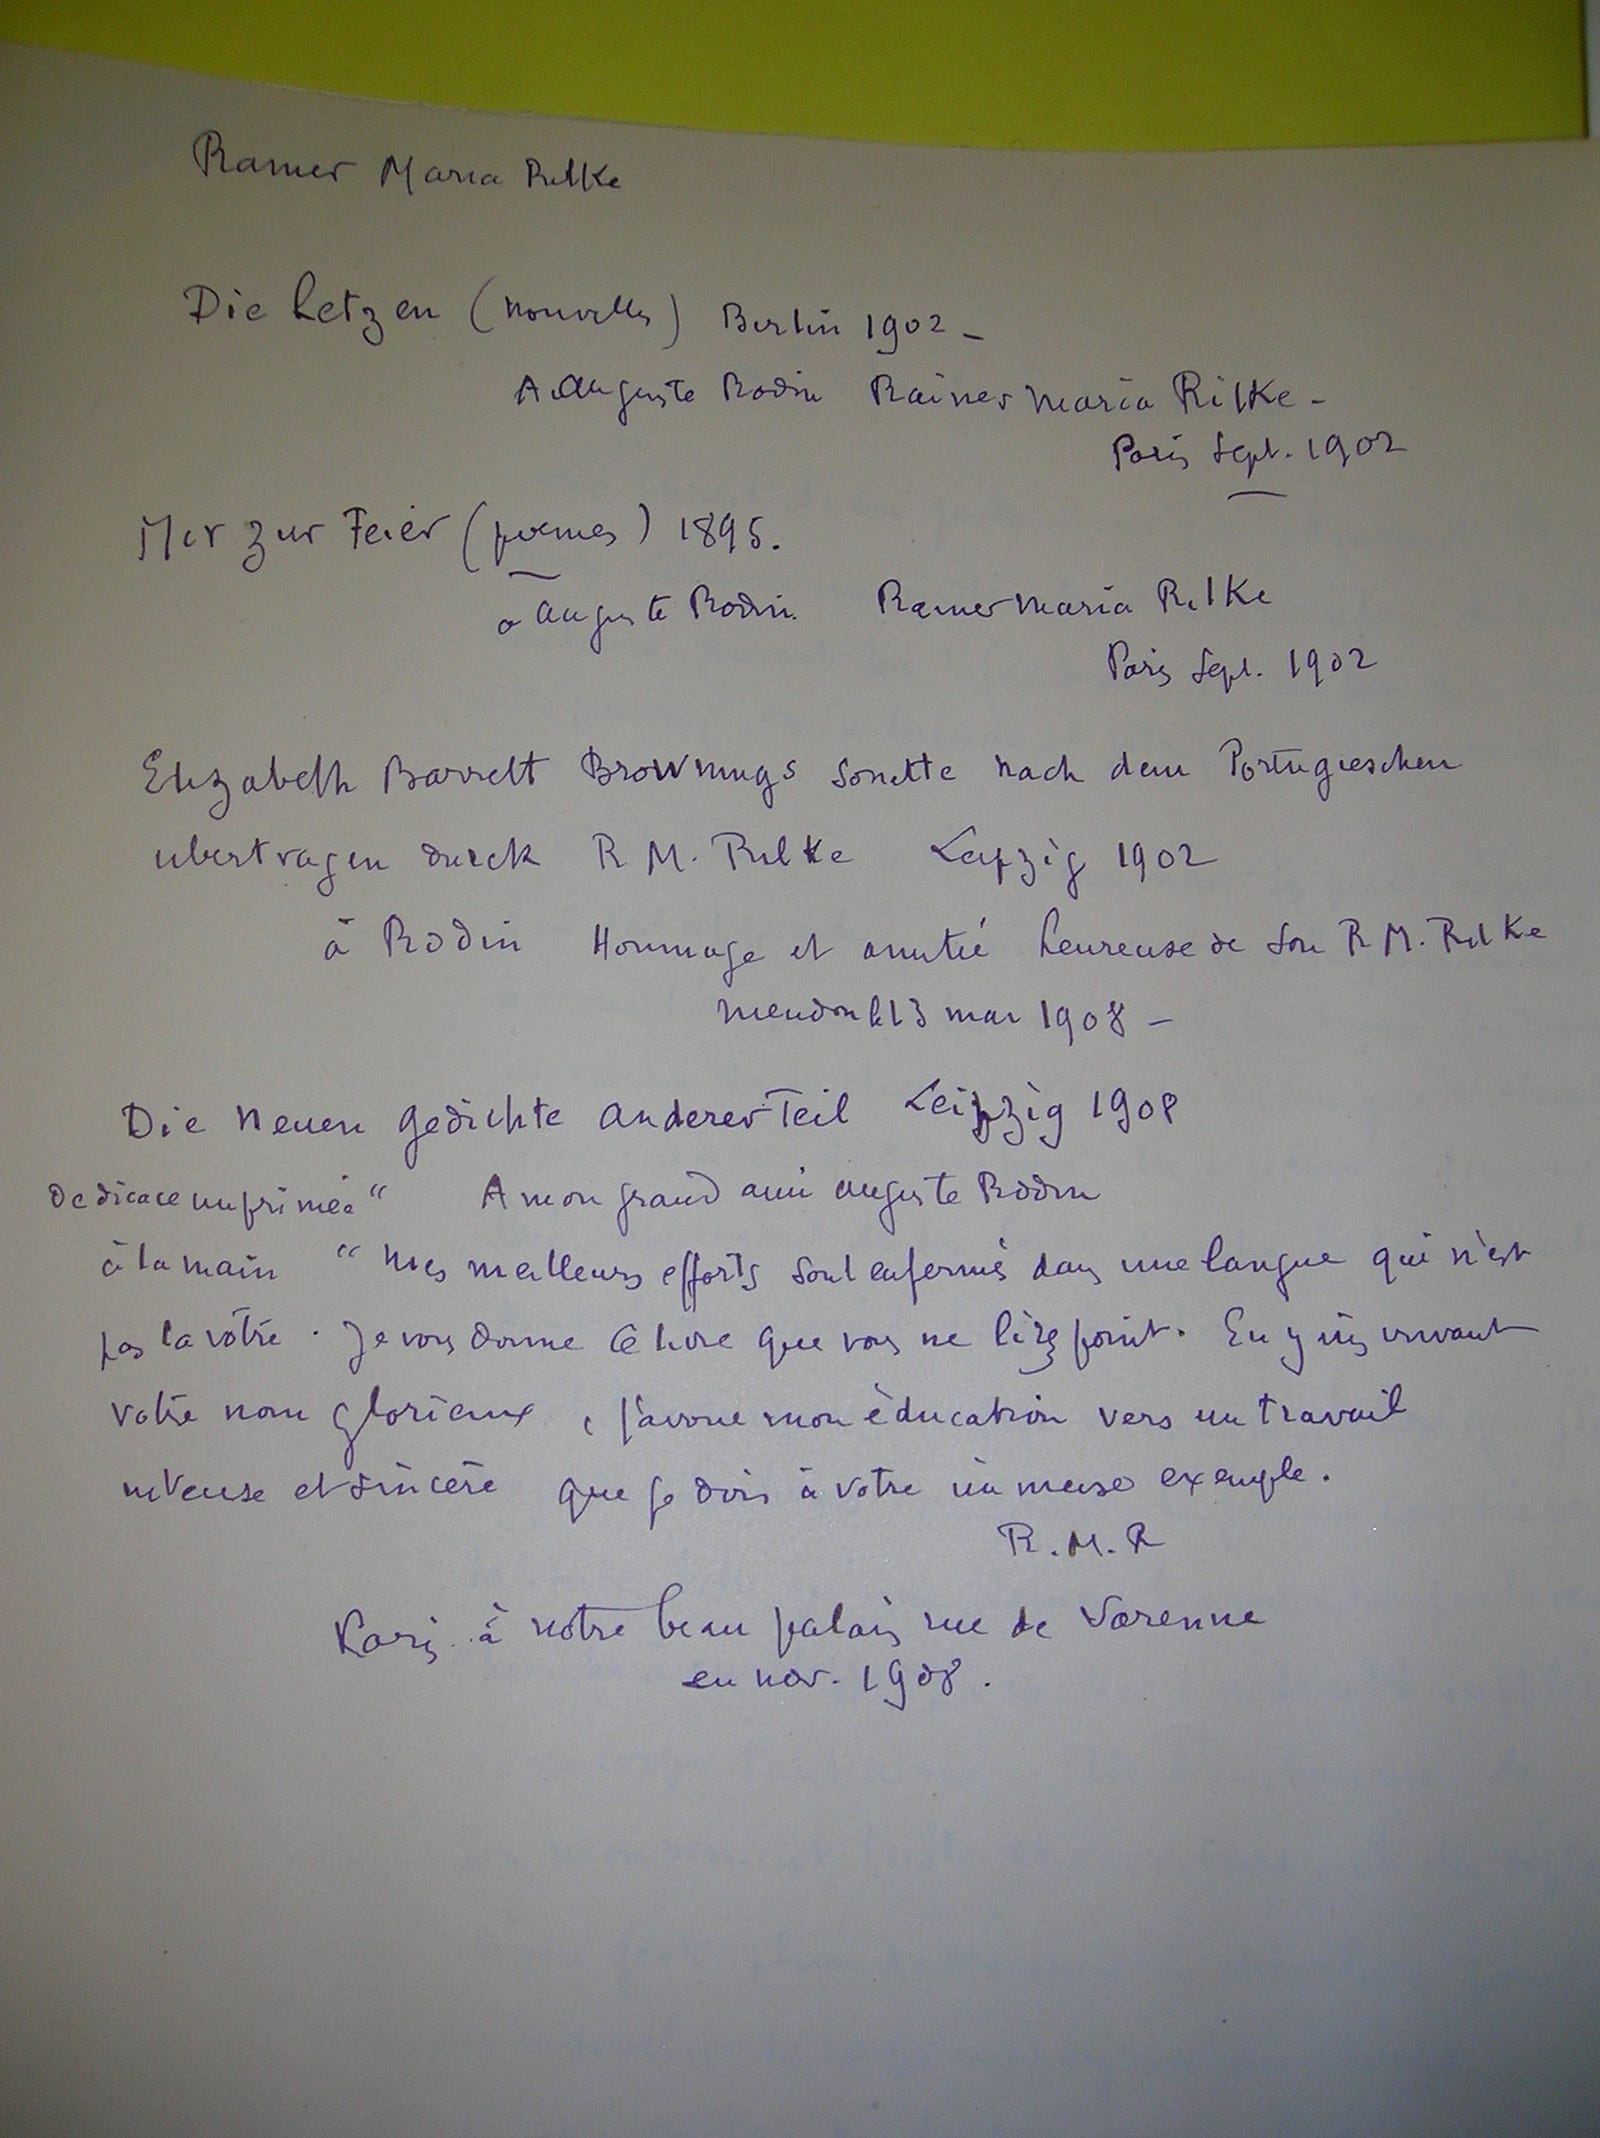 Rainer Maria Rilke
Die Letzen (nouvelles) Berlin 1902 –
A Auguste Rodin Rainer Maria Rilke –
Paris Sept. 1902
Mir zur Feier (poemes) 1895.
a Auguste Rodin Rainer Maria Rilke
Paris Sept. 1902
Elizabeth Barrett Brownings Sonette nach dem Portugieschen
ubertragen durch R M. Rilke Leipzig 1902
à Rodin Hommage et amitié heureuse de son R M. Rilke
Meudon le 13 mai 1908 –
Die Neuen Gedichte Anderer Teil Leipzig 1908
Dedicace imprimée " A mon grand ami Auguste Rodin
à la main " Mes meilleurs efforts sont enfermés dans une langue qui n'est
pas la vôtre. Je vous donne ce livre que vous ne lirez point. En y inscrivant
votre nom glorieux, j'avoue mon éducation vers un travail
et sincère que je dois à votre immense exemple.
R. M. R
Paris. à notre beau palais rue de Varenne
en nov. 1908.